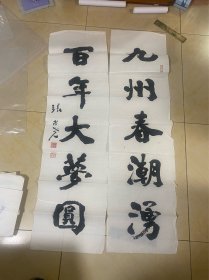 九州春潮湧
百年大夢圓